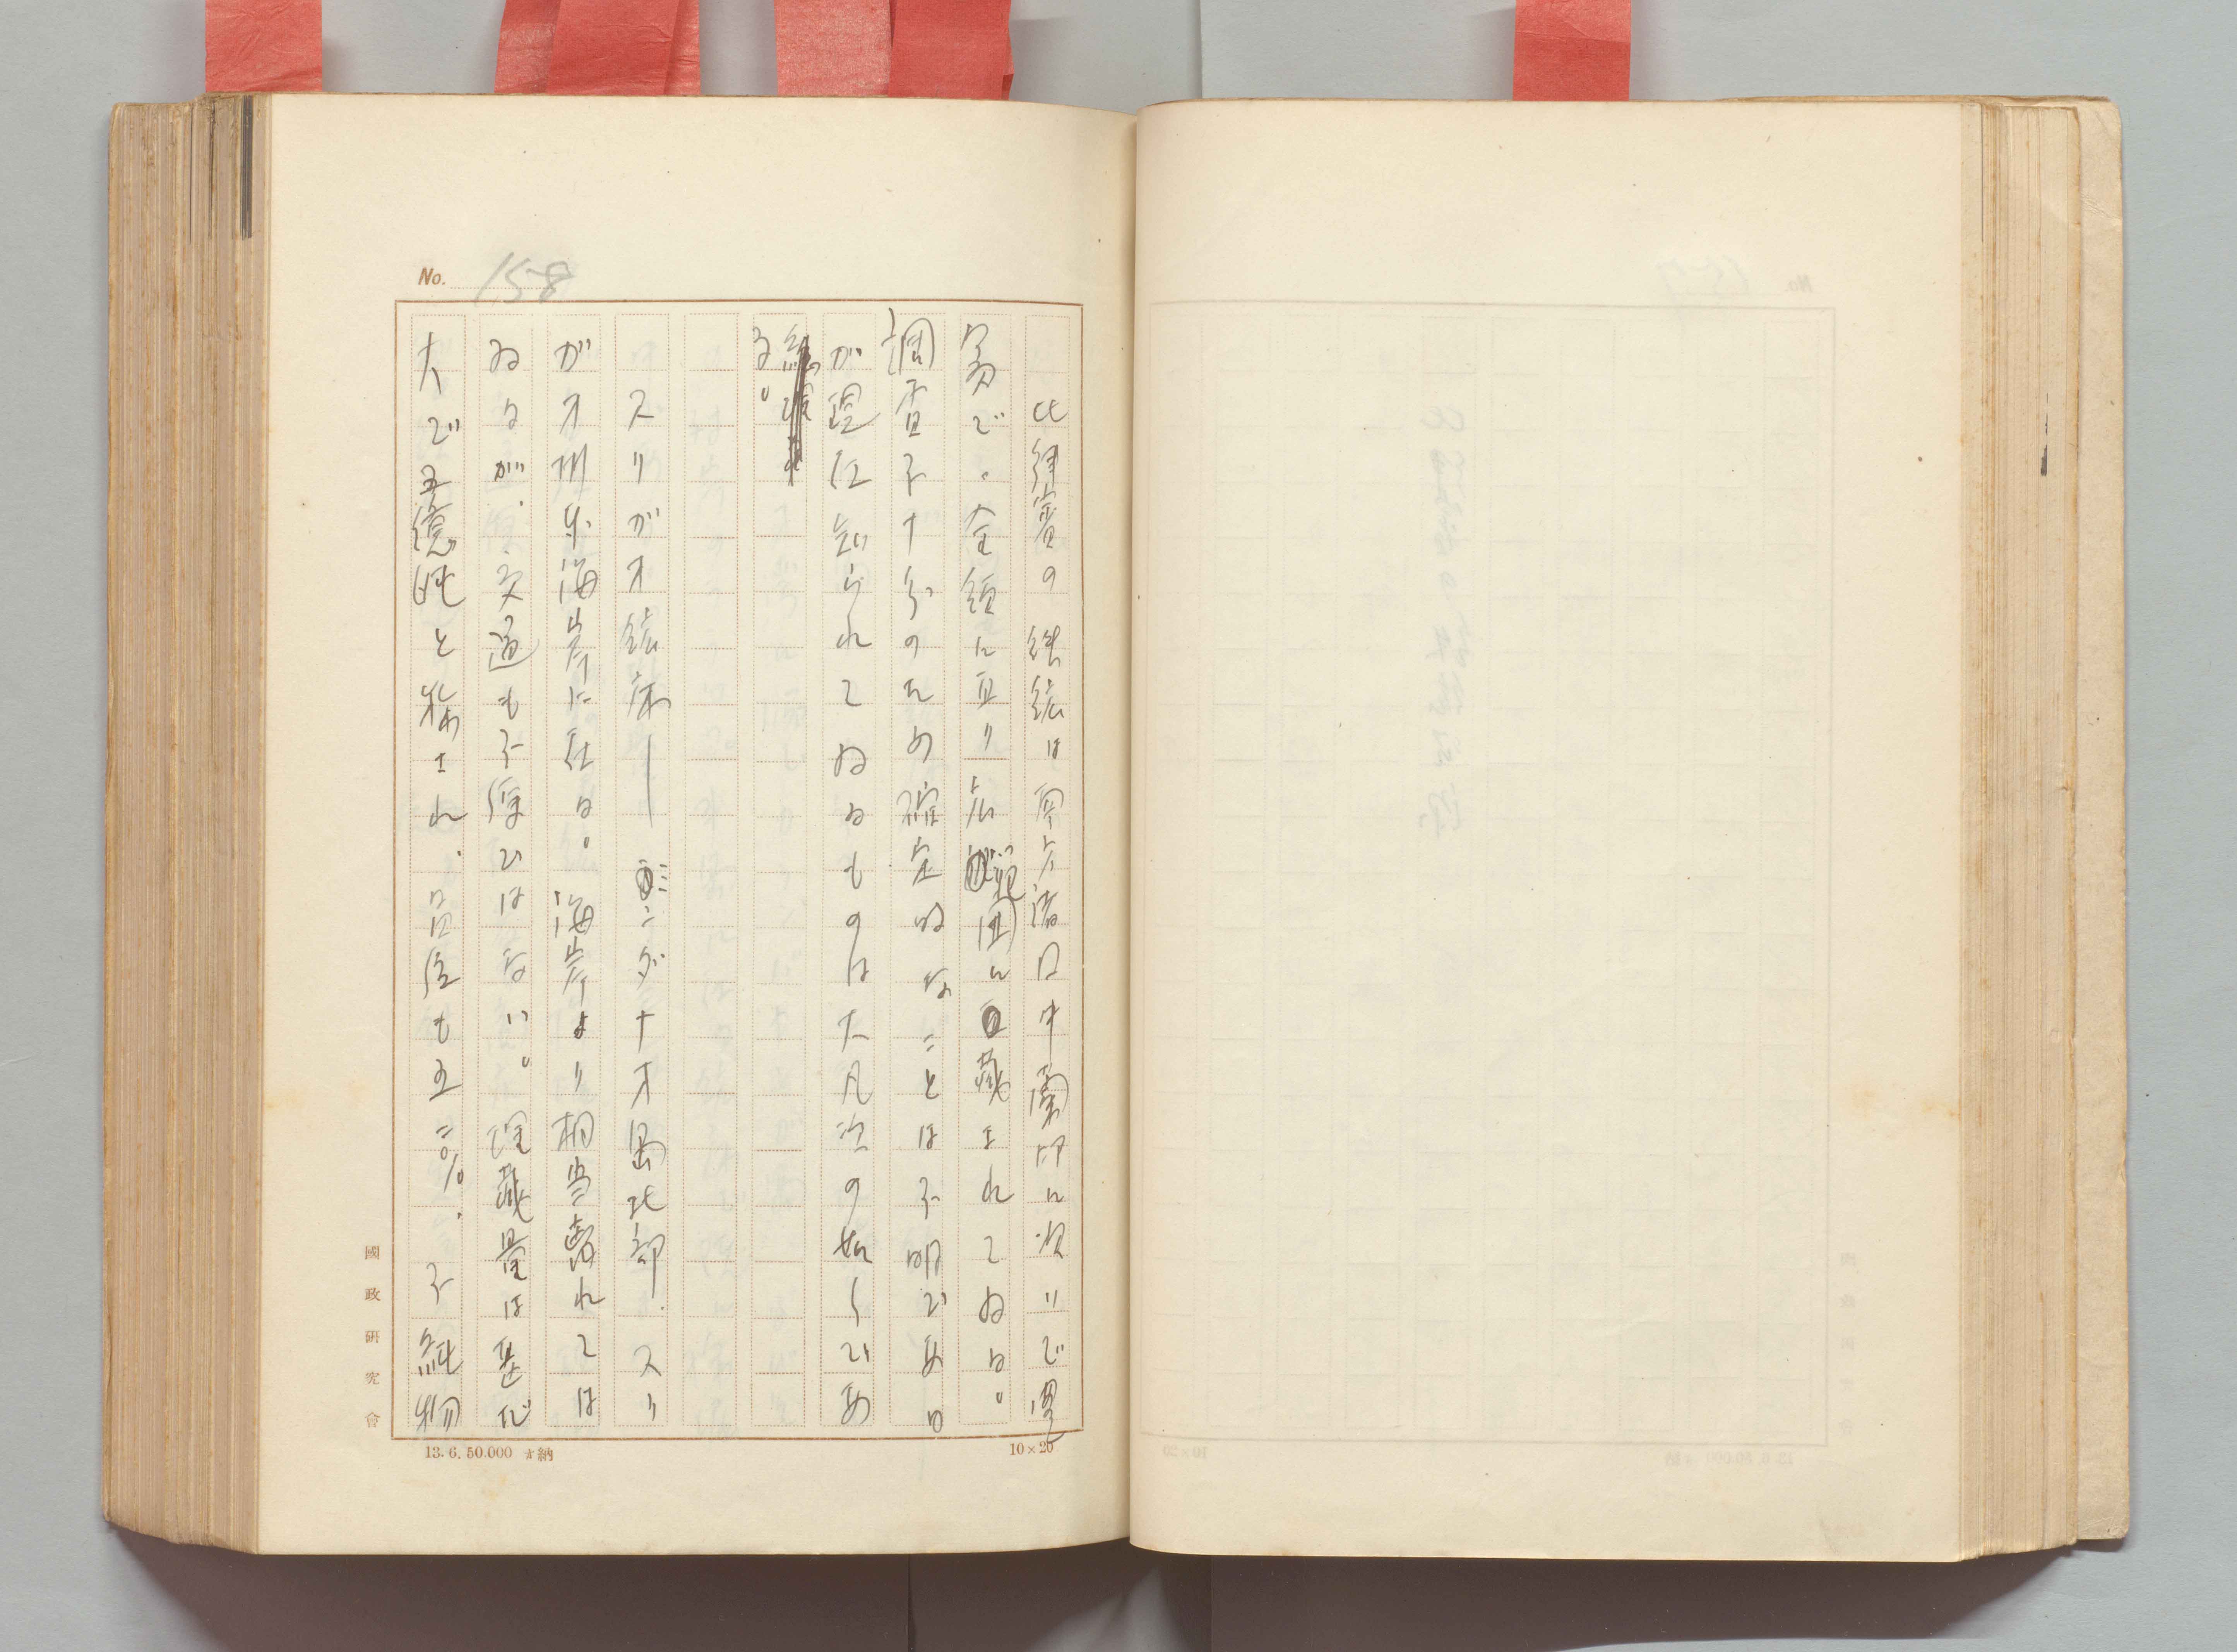 No. 158
比律賓の鉄鉱は南方諸口中蘭印に次いで豊
富で、全領に亘り広範囲に蔵されてゐる。
調査不十分のため確定的なことは不明である
が現在知られてゐるものは大凡次の如くであ
る。
スリガオ鉱床— ミンダナオ島北部、スリ
ガオ州東海岸に在る。海岸より相当離れては
ゐるが、交通も不便ではない。埋蔵量は甚だ
大で五億屯と称され、品位も五二%、不純物
國政研究會
13.6.50.000 納
10×20